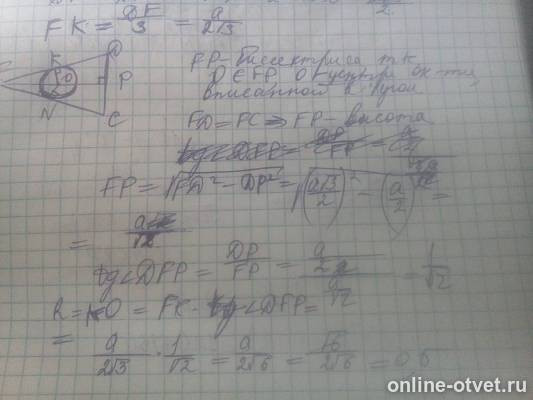 FK = DF/3 = a/2√3
D
K
O
P
N
C
FP - биссектриса т.к.
O ∈ FP, O - центр
вписанной в угол
FD = FC ⇒ FP - высота
FP = √FD² - DP² = √(a√3/2)² - (a/2)² =
= a/√2
tg∠DFP = DP/FP = = 1/√2
R = KO = FK · tg∠DFP =
= a/2√3 · 1/√2 = a/2√6 = √6/2√6 = 0,5
online-otvet.ru